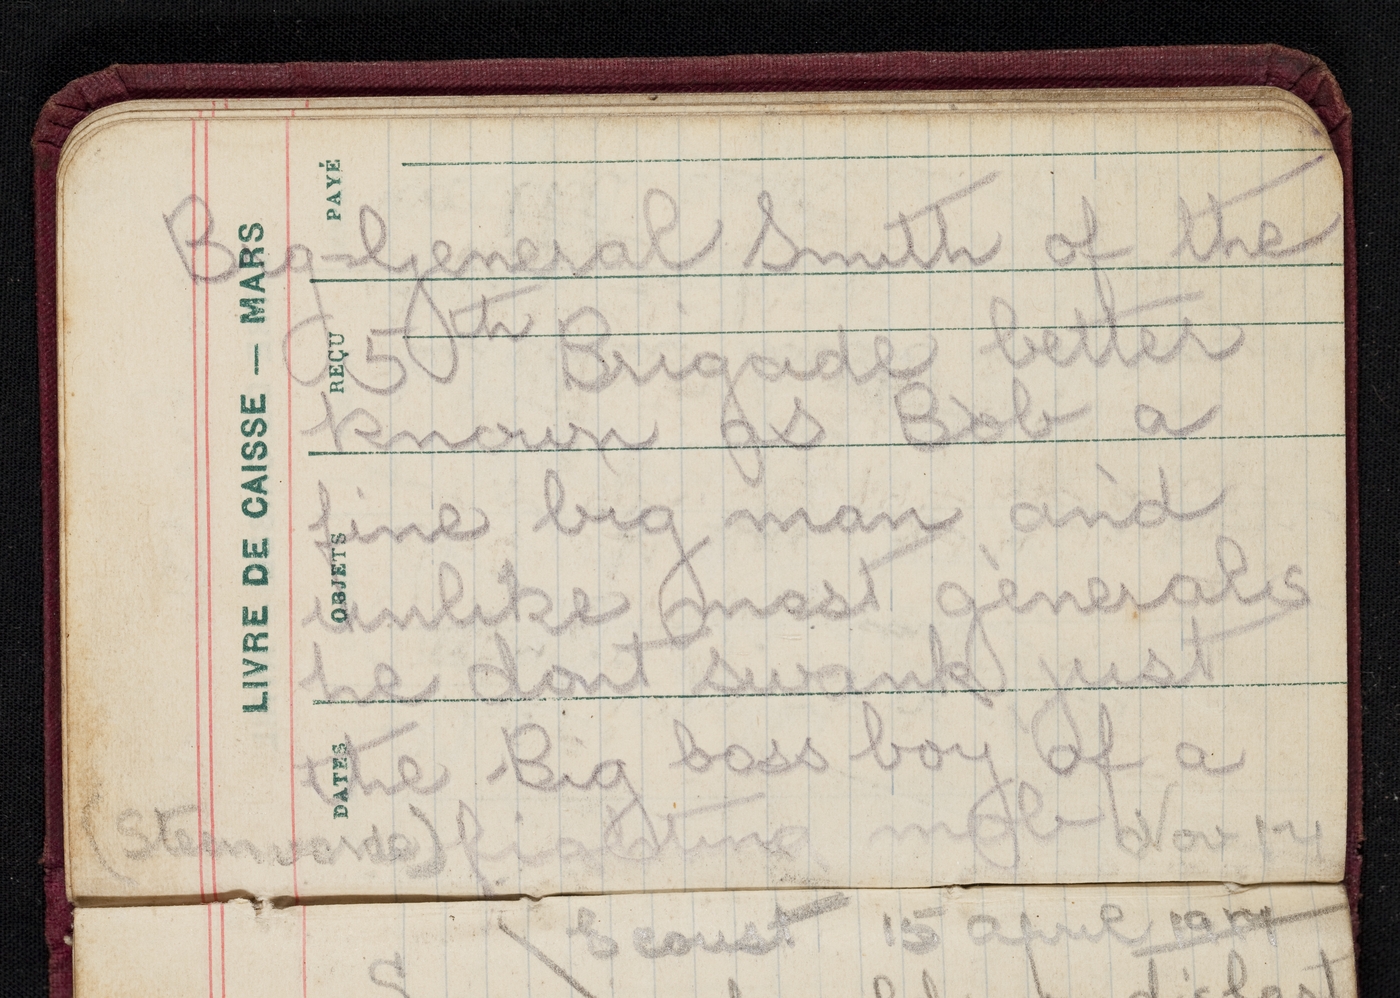 LIVRE DE CAISSE — MARS
PAYÉ
REÇU
OBJETS
DATES
Big-General Smith of the
(5)th Brigade better
known as Bob a
fine big man and
unlike most generals
he dont swank just
the Big boss boy of a
(Steinverde) fighting mob Nov 17
Ecoust 15 april 1917